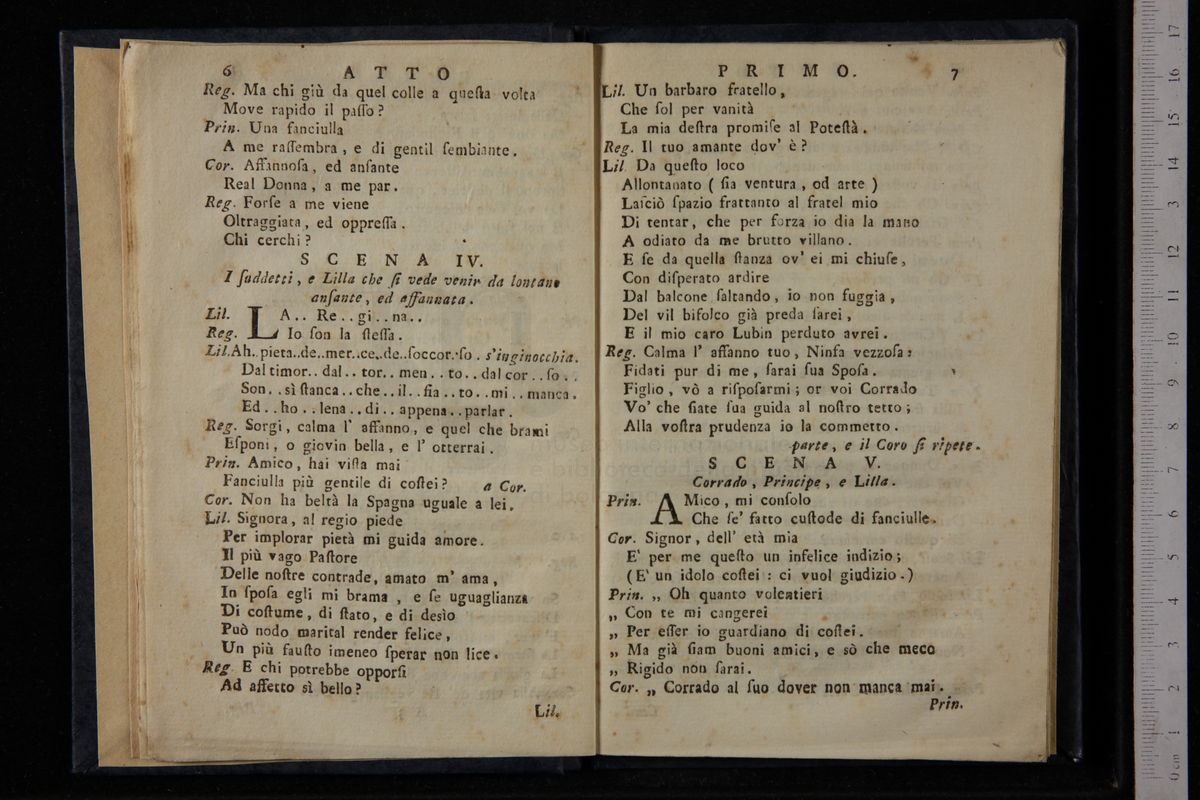 6 ATTO
Reg. Ma chi giù da quel colle a queſta volta
Move rapido il paſſo?
Prin. Una fanciulla
A me raſſembra, e di gentil ſembiante.
Cor. Affannoſa, ed anſante
Real Donna, a me par.
Reg. Forſe a me viene
Oltraggiata, ed oppreſſa.
Chi cerchi?
SCENA IV.
I ſuddetti, e Lilla che ſi vede venir da lontano
anſante, ed affannata.
Lil. LA.. Re..gi..na..
Reg. Io ſon la ſteſſa.
Lil. Ah..pieta..de..mer..ce..de..ſoccor..ſo. s'inginocchia.
Dal timor..dal..tor..men..to..dal cor..ſo..
Son..sì ſtanca..che..il..fia..to..mi..manca.
Ed..ho..lena..di..appena..parlar.
Reg. Sorgi, calma l' affanno, e quel che brami
Eſponi, o giovin bella, e l' otterrai.
Prin. Amico, hai viſta mai
Fanciulla più gentile di coſtei? a Cor.
Cor. Non ha beltà la Spagna uguale a lei.
Lil. Signora, al regio piede
Per implorar pietà mi guida amore.
Il più vago Paſtore
Delle noſtre contrade, amato m' ama,
In ſpoſa egli mi brama, e ſe uguaglianza
Di coſtume, di ſtato, e di desìo
Può nodo marital render felice,
Un più fauſto imeneo ſperar non lice.
Reg. E chi potrebbe opporſi
Ad affetto sì bello?
Lil.
PRIMO. 7
Lil. Un barbaro fratello,
Che ſol per vanità
La mia deſtra promiſe al Poteſtà.
Reg. Il tuo amante dov' è?
Lil. Da queſto loco
Allontanato (ſia ventura, od arte)
Laſciò ſpazio frattanto al fratel mio
Di tentar, che per forza io dia la mano
A odiato da me brutto villano.
E ſe da quella ſtanza ov' ei mi chiuſe,
Con diſperato ardire
Dal balcone ſaltando, io non fuggia,
Del vil bifolco già preda ſarei,
E il mio caro Lubin perduto avrei.
Reg. Calma l' affanno tuo, Ninfa vezzoſa:
Fidati pur di me, ſarai ſua Spoſa.
Figlio, vò a ripoſarmi; or voi Corrado
Vo' che ſiate ſua guida al noſtro tetto;
Alla voſtra prudenza io la commetto.
parte, e il Coro ſi ripete.
SCENA V.
Corrado, Principe, e Lilla.
Prin. AMico, mi conſolo
Che ſe' fatto cuſtode di fanciulle.
Cor. Signor, dell' età mia
E' per me queſto un infelice indizio;
(E' un idolo coſtei: ci vuol giudizio.)
Prin. „ Oh quanto volentieri
„ Con te mi cangerei
„ Per eſſer io guardiano di coſtei.
„ Ma già ſiam buoni amici, e sò che meco
„ Rigido non ſarai.
Cor. „ Corrado al ſuo dover non manca mai.
Prin.